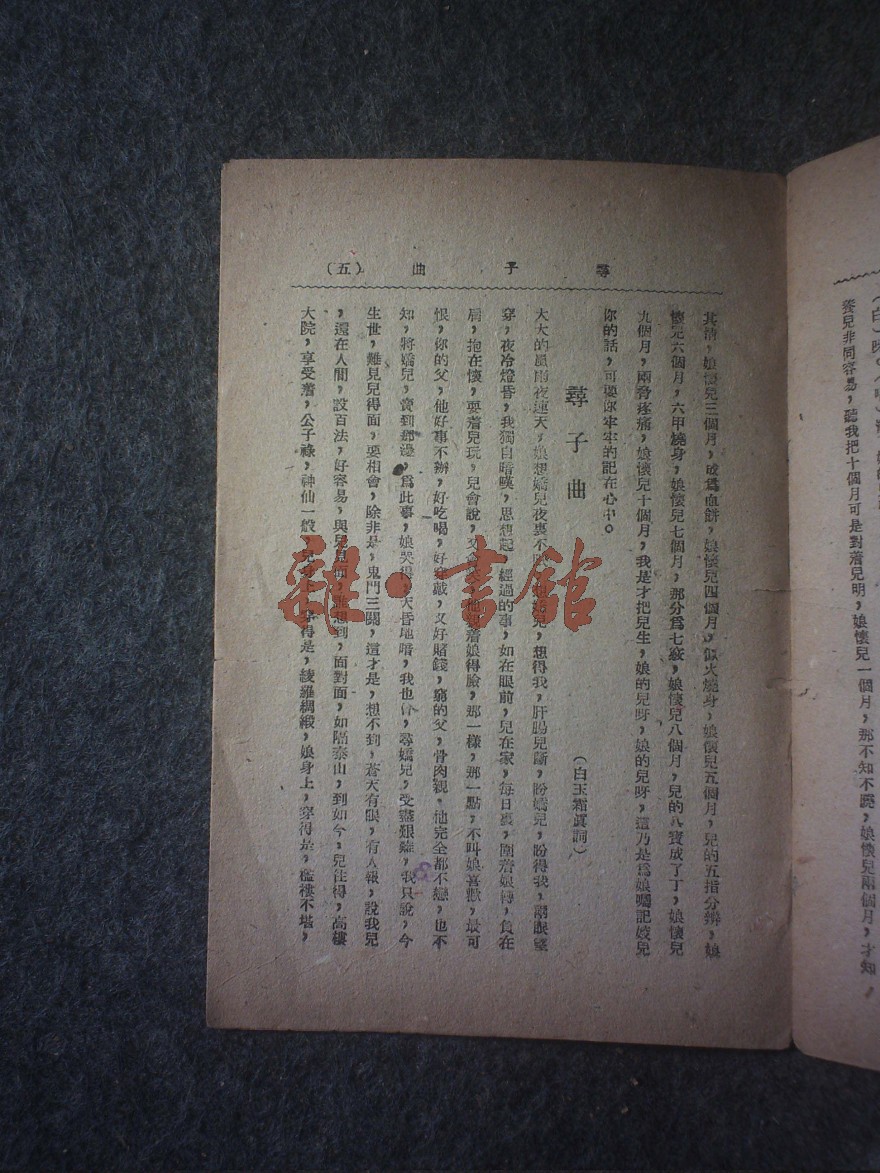 （白）
養兒非同容易，聽我把十個月可是對着兒明，娘懷兒一個月，那不知不覺，娘懷兒兩個月，才知，
尋子曲（五）
其情，娘懷兒三個月，成爲血餅，娘懷兒四個月，似火燒身，娘懷兒五個月，兒的五指分辨，娘
懷兒六個月，六甲燒身，娘懷兒七個月，那分爲七竅，娘懷兒八個月，兒的八寶成了丁，娘懷兒
九個月，兩脅疼痛，娘懷兒十個月，我是才把兒生，娘的兒呀，娘的兒呀，這乃是爲娘囑記姣兒
你的話，可要你牢牢的記在心中。
尋子曲
（白玉霜眞詞）
大大的風雨夜連天，娘想嬌兒夜裏不，想得我，肝腸兒斷，盼嬌兒，盼得我，兩眼望
穿，夜冷燈昏，我獨自暗嘆，思想起，經過的事，如在眼前，兒在家，每日裏，圍着娘轉，負在
肩，抱在懷，要着兒玩，兒會說，又會笑，他親着娘得臉，那一樣，那一點，不叫娘喜歡，最可
恨，你的父，他好事不辦，好吃喝，好穿戴，又好賭錢，窮的父，骨肉親，他完全都不戀，也不
知，將嬌兒，賣到那邊，爲此事，娘哭得，天昏地暗，我也曾，尋嬌兒，受盡艱難，我只說，今
生世，難見兒得面，要相會，除非是，鬼門三關，這才是，想不到，蒼天有眼，有人報，說我兒
，還在人間，設百法，好容易，與兒見面，誰想到，面對面，如隔泰山，到如今，兒住得，高樓
大院，享受着，公子祿，神仙一般，兒身上，穿得是，綾羅綢緞，娘身上，穿得是，襤褸不堪，
雜·書館